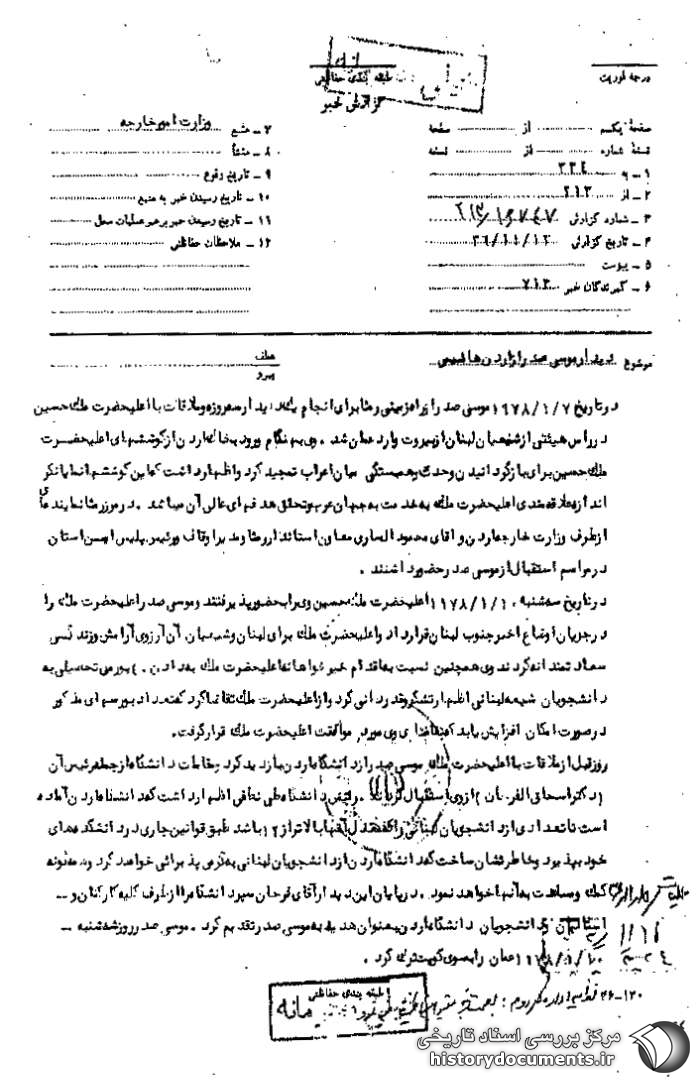 درجه فوریت
طبقه بندی حفاظتی
گزارش خبر
صفحهٔ یکم از صفحه
نسخهٔ شماره از نسخه
۱ - به ۳۳۴
۲ - از ۲۱۳
۳ - شماره گزارش
۴ - تاریخ گزارش
۵ - پیوست
۶ - گیرندگان خبر ۷۱۳
۷ - منبع وزارت امور خارجه
۸ - منشأ
۹ - تاریخ وقوع
۱۰ - تاریخ رسیدن خبر به منبع
۱۱ - تاریخ رسیدن خبر به رهبر عملیات محل
۱۲ - ملاحظات حفاظتی
موضوع دیدار موسی صدر از اردن هاشمی
عطف
پیرو
در تاریخ ۱۹۷۸/۱/۷ موسی صدر از راه زمینی و مشا برای انجام یک دیدار سه روزه و ملاقات با اعلیحضرت ملک حسین
در راس هیئتی از شیعیان لبنان از بیروت وارد عمان شد . وی به هنگام ورود به خاک اردن از کوششهای اعلیحضرت
ملک حسین برای بازگردانیدن وحدت و همبستگی میان اعراب تمجید کرد و اظهار داشت که این کوششها نمایانگر
اندازه علاقمندی اعلیحضرت ملک به خدمت به جهان عرب و تحقق هدفهای عالی آن میباشد . در مرز رمثا نماینده‌ای
از طرف وزارت خارجه اردن و آقای محمود معاون استاندار و مدیر اوقاف و رئیس پلیس این استان
در مراسم استقبال از موسی صدر حضور داشتند .
در تاریخ سه شنبه ۱۹۷۸/۱/۱۰ اعلیحضرت ملک حسین وی را بحضور پذیرفتند و موسی صدر اعلیحضرت ملک را
در جریان اوضاع اخیر جنوب لبنان قرار داد و اعلیحضرت ملک برای لبنان و شیعیان آن آرزوی آرامش و زندگی
سعادتمندانه کردند وی همچنین نسبت به اقدام خیرخواهانه اعلیحضرت ملک به دادن بورس تحصیلی به
دانشجویان شیعه لبنانی اظهار تشکر و قدردانی کرد و از اعلیحضرت ملک تقاضا کرد که تعداد بورسهای مذکور
در صورت امکان افزایش یابد که تقاضای وی مورد موافقت اعلیحضرت ملک قرار گرفت.
روز قبل از ملاقات با اعلیحضرت ملک موسی صدر از دانشگاه اردن بازدید کرد و مقامات دانشگاه از جمله رئیس آن
(دکتر اسحاق الفرحان) از وی استقبال کردند . رئیس دانشگاه طی نطقی اظهار داشت که دانشگاه اردن آماده
است تا تعدادی از دانشجویان لبنانی را که معدل آنها بالاتر از باشد طبق قوانین جاری در دانشکده‌های
خود بپذیرد و خاطرنشان ساخت که دانشگاه اردن از دانشجویان لبنانی به گرمی پذیرائی خواهد کرد و همه گونه
کمک و مساعدت به آنها خواهد نمود . در پایان این دیدار آقای فرحان سپر دانشگاه را از طرف کلیه کارکنان و ــ
استادان و دانشجویان دانشگاه اردن بعنوان هدیه به موسی صدر تقدیم کرد . موسی صدر روز سه شنبه ــ
۱۹۷۸/۱/۱۰ عمان را بسوی کویت ترک کرد .
طبقه بندی حفاظتی
مرکز بررسی اسناد تاریخی
historydocuments.ir